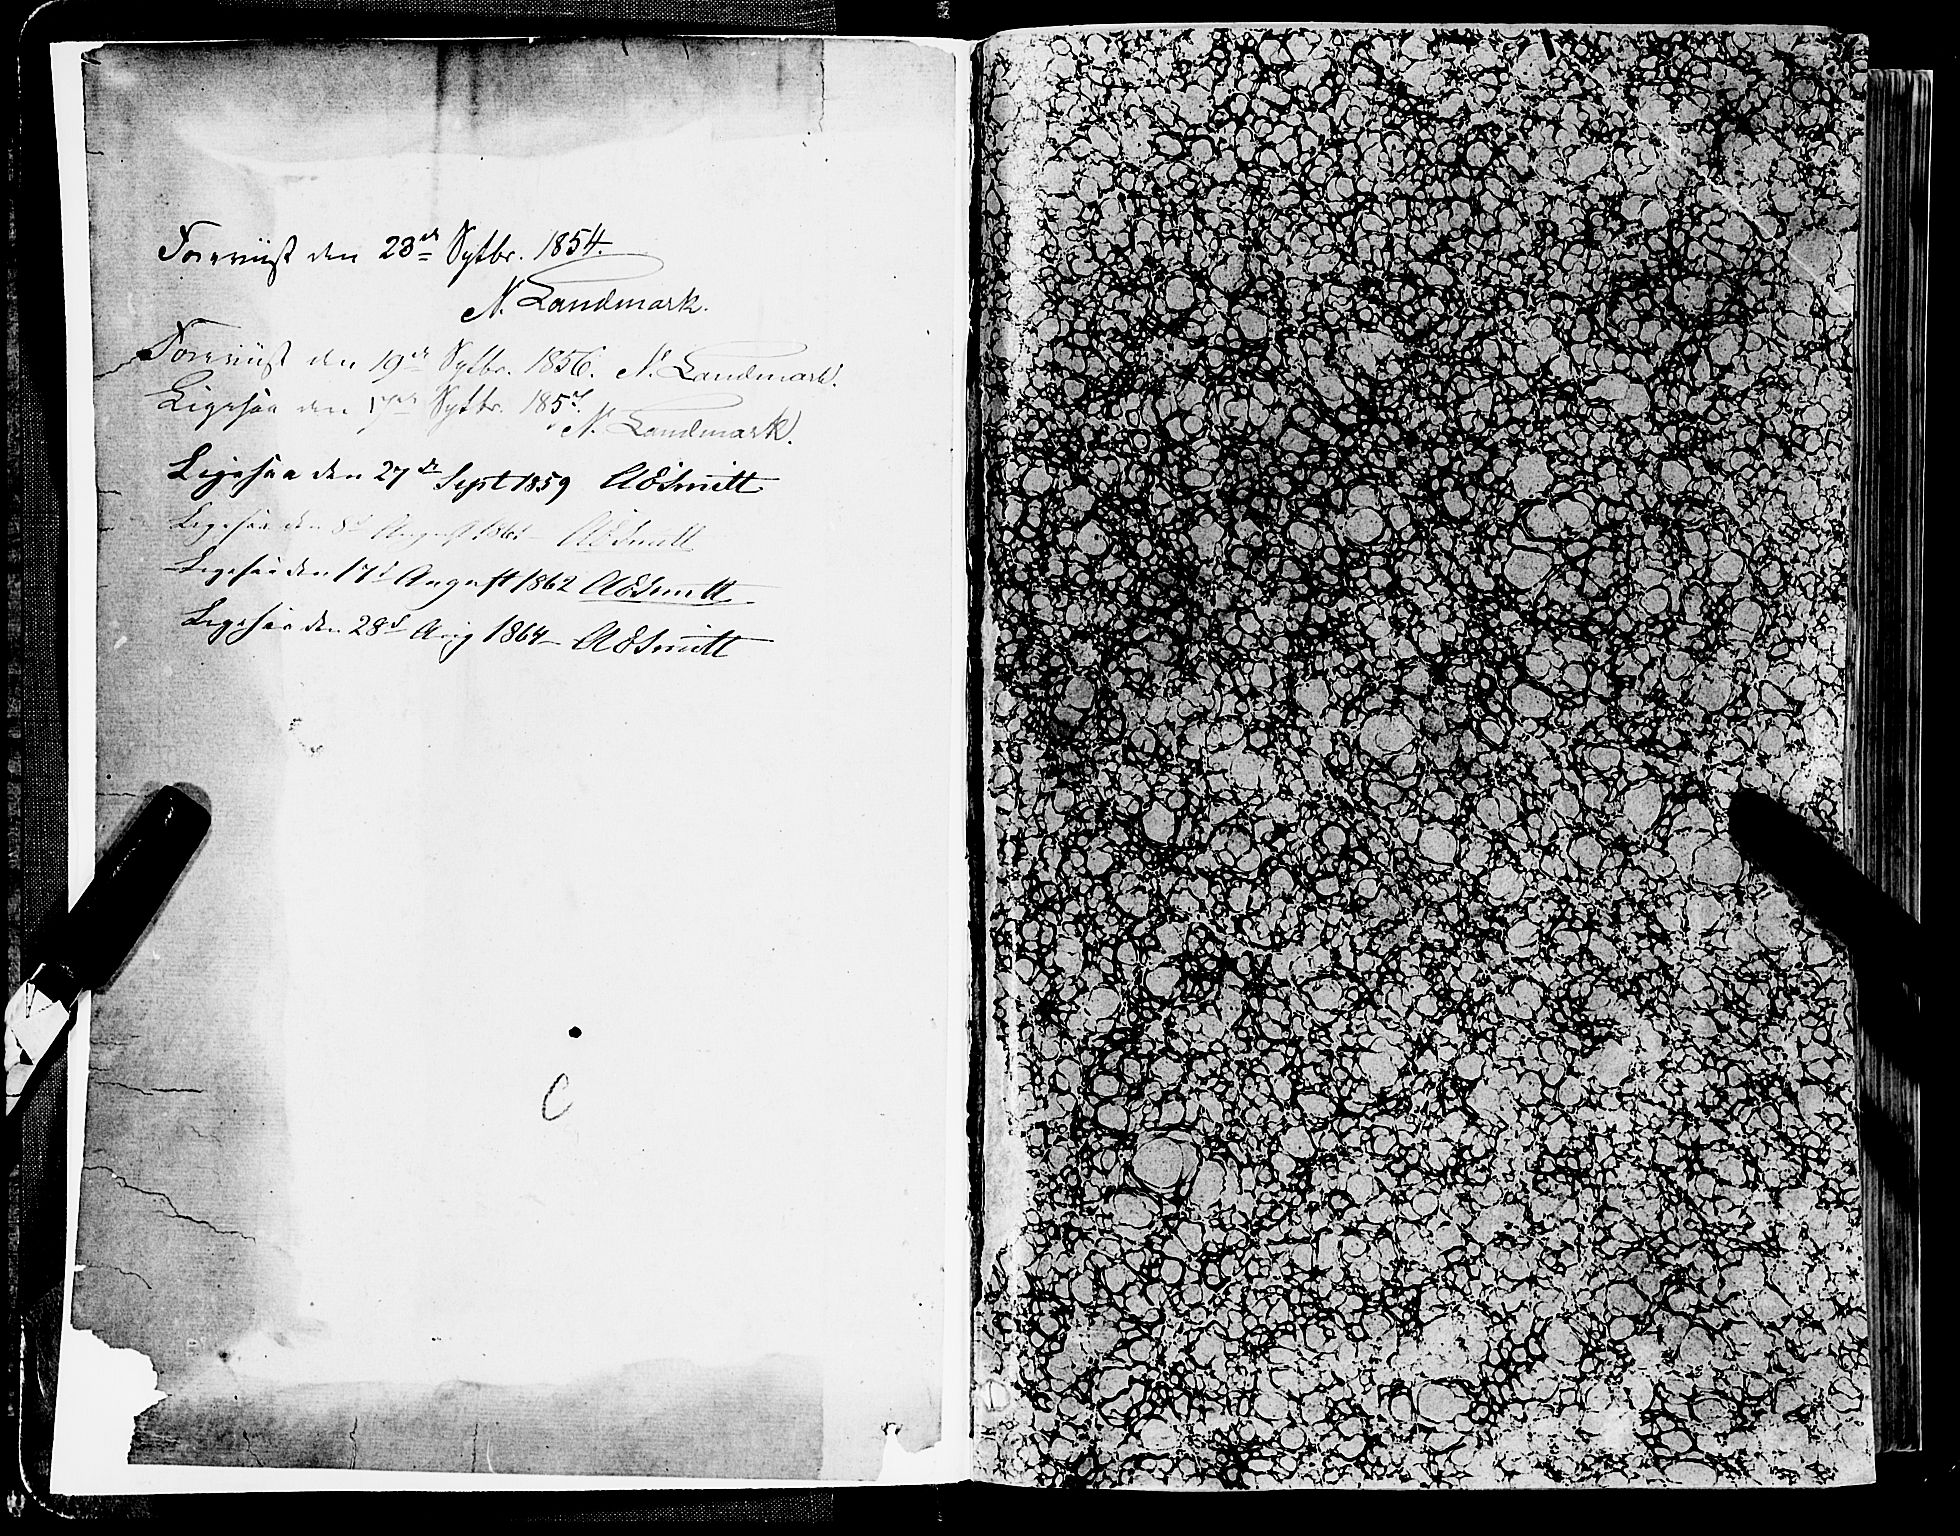 Foreviist den 23de Septbr. 1854.
N. Landmark.
Foreviist den 19de Septbr. 1856. N. Landmark.
Ligesaa den 17de Septbr. 185
N. Landmark.
Ligesaa den 27de Sept 1859 AESmitt
Ligesaa den 8d August 186 AESmitt
Ligesaa den 17d August 1862 AESmitt
Ligesaa den 28d Aug 1864 – AESmitt